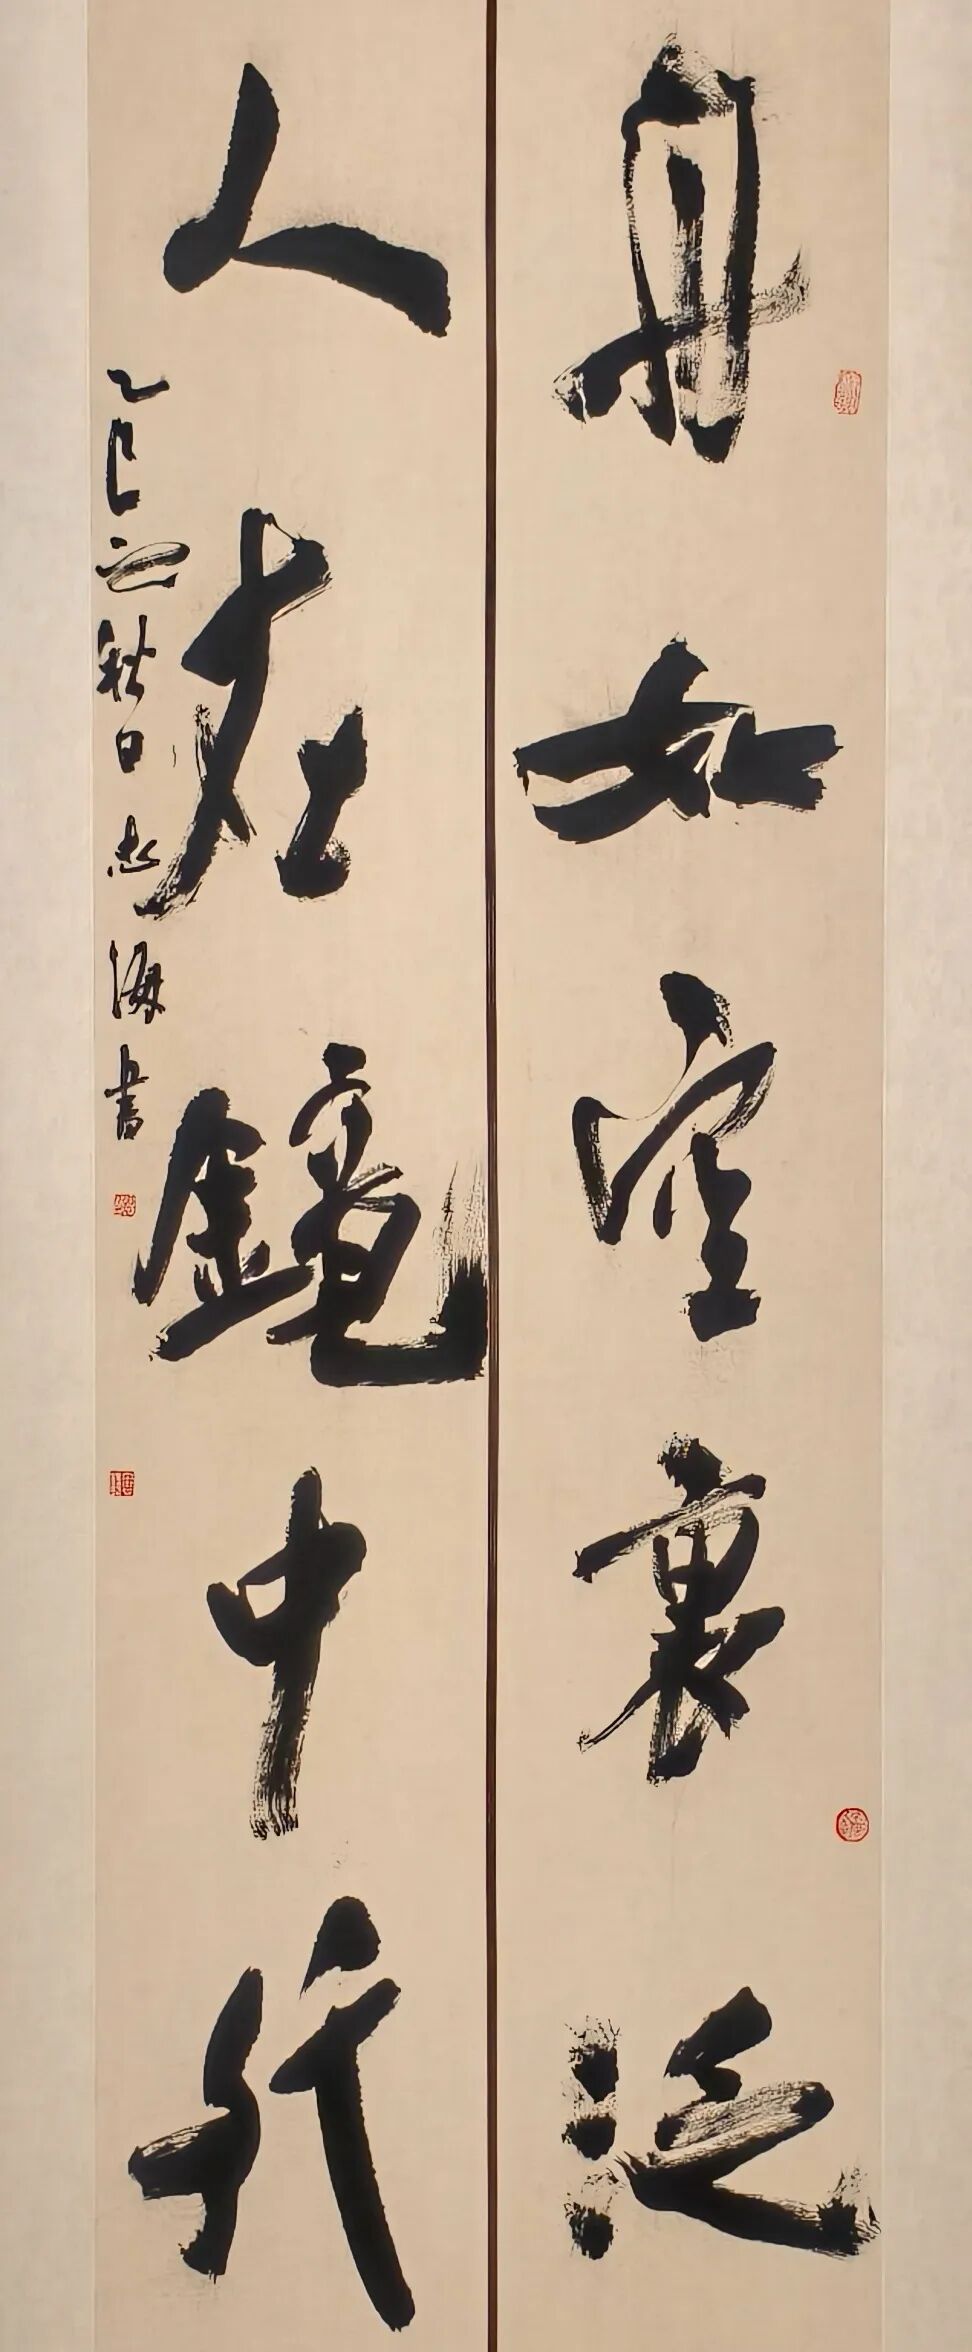 舟如空裏泛
人在鏡中行
乙巳之秋日忠海書